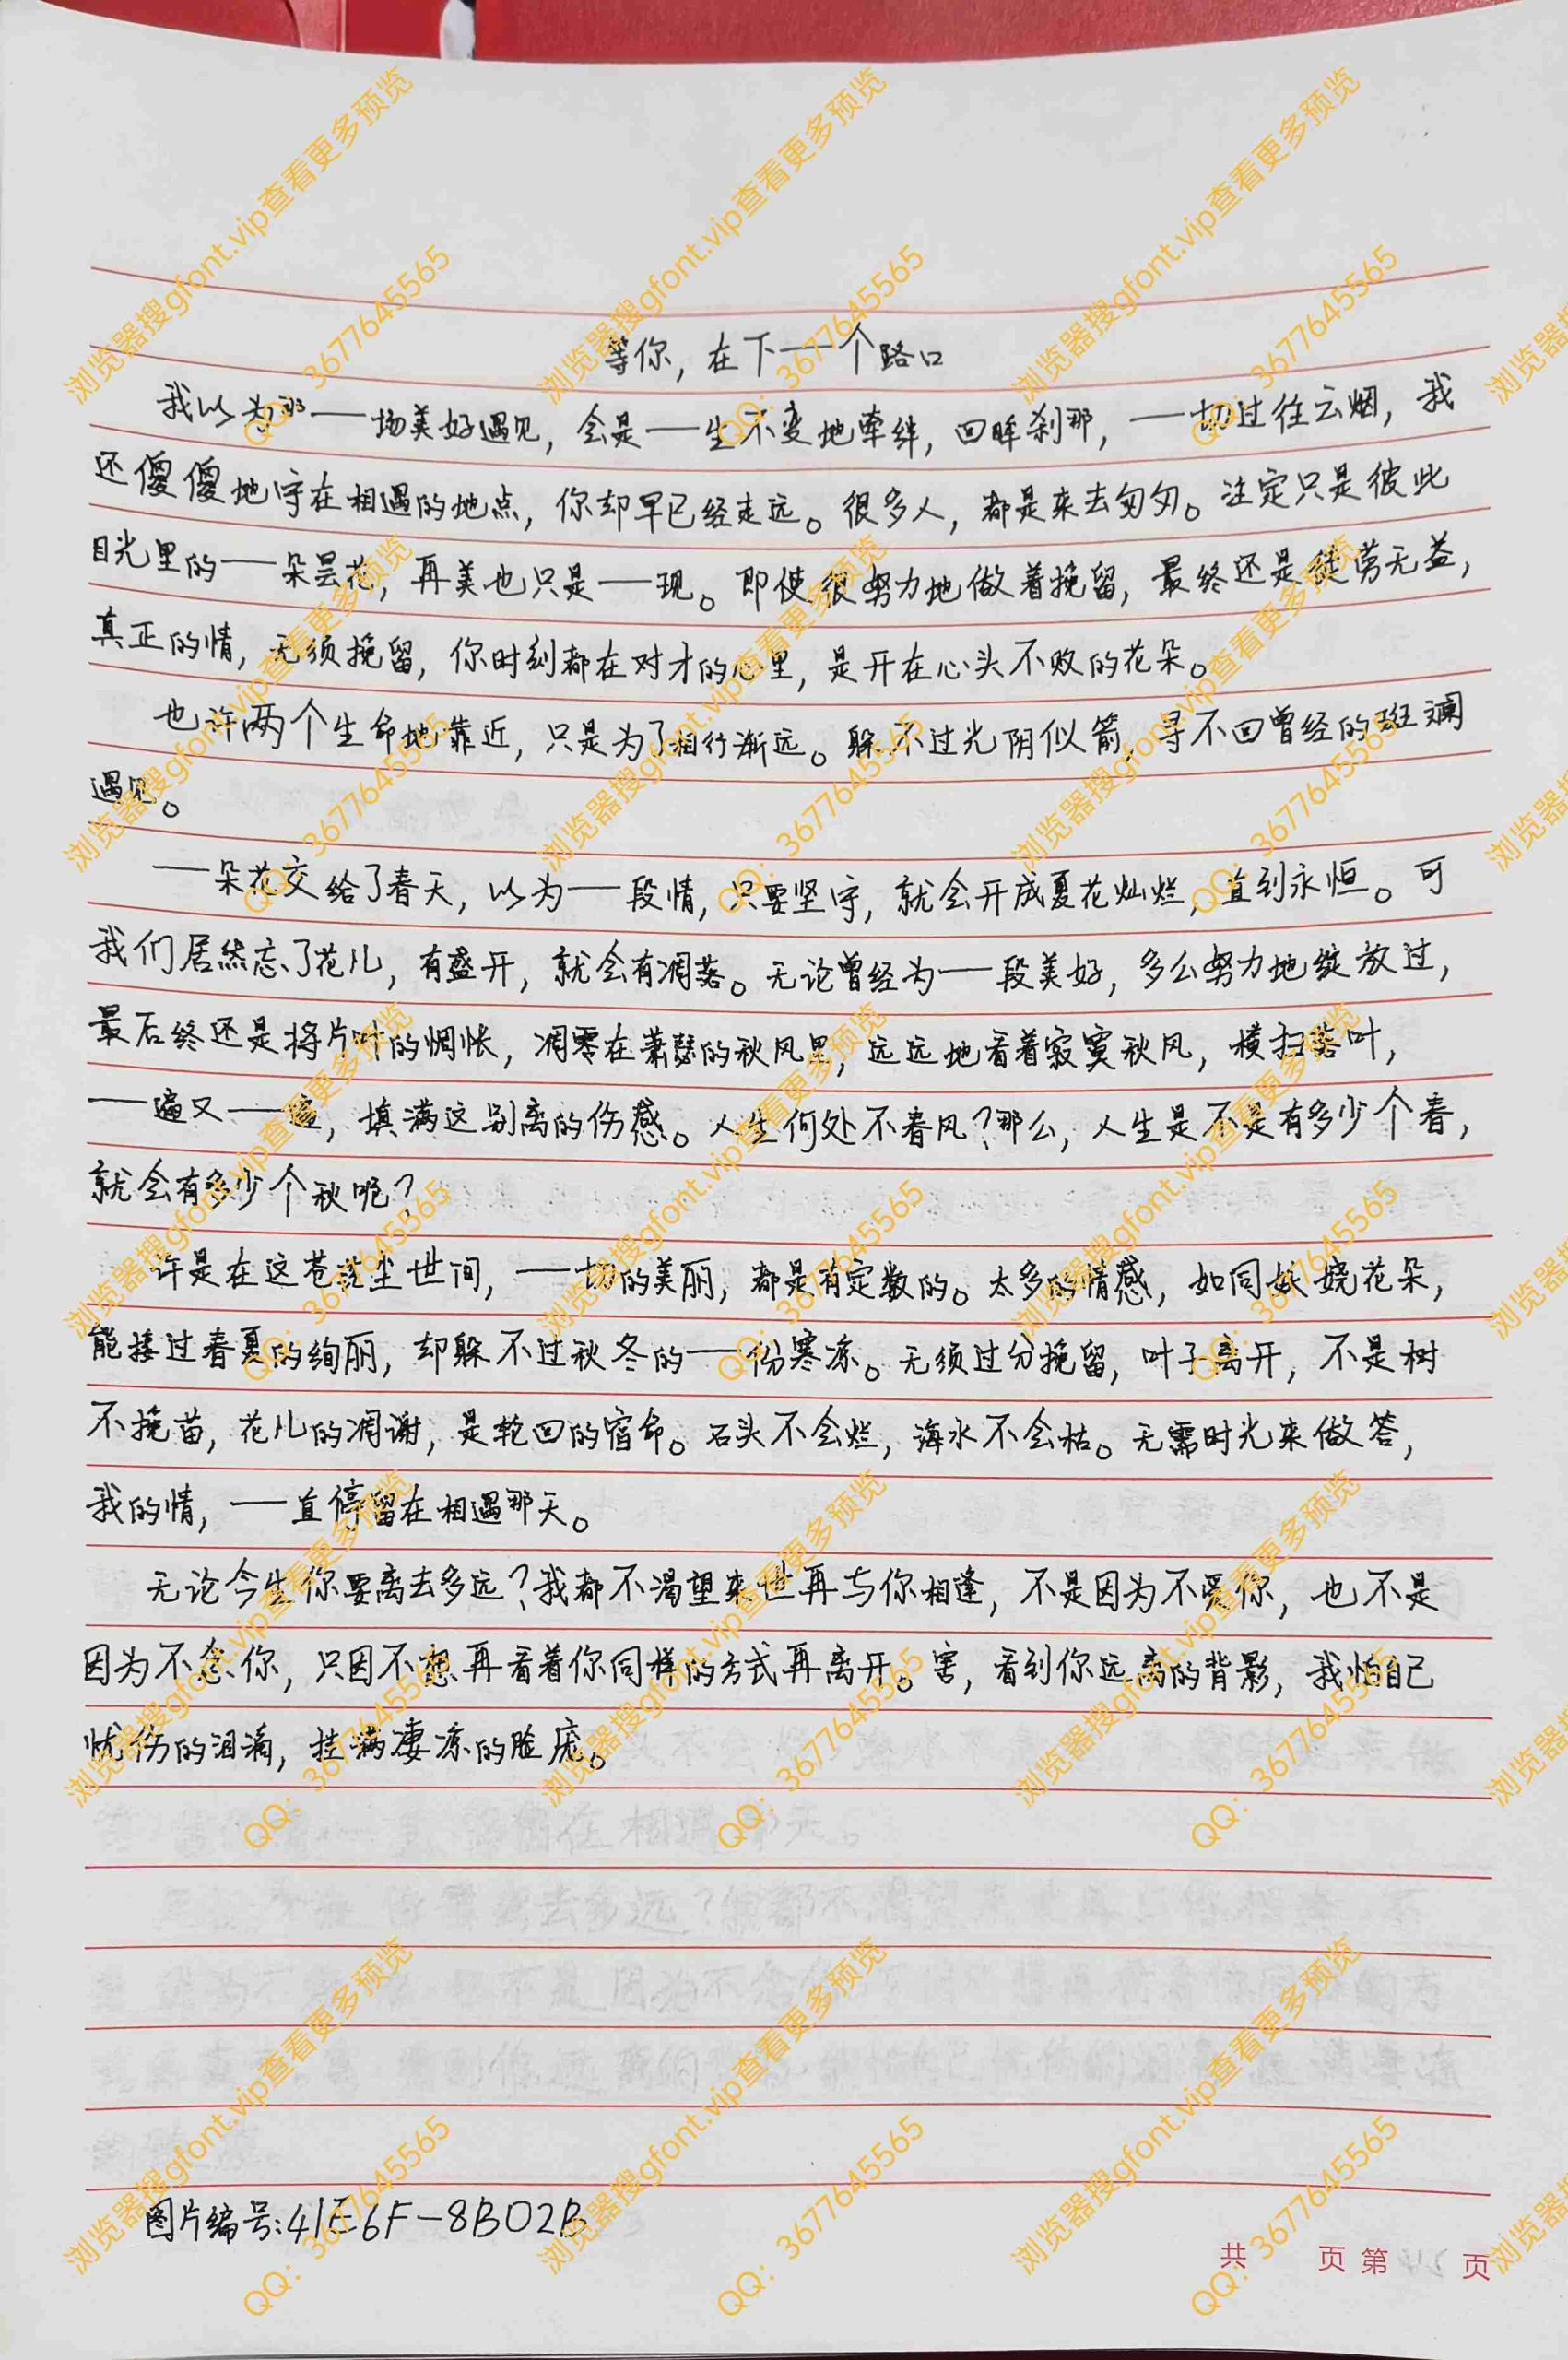 等你，在下一个路口
我以为那一场美好遇见，会是一生不变地牵绊，回眸刹那，一切过往云烟，我
还傻傻地守在相遇的地点，你却早已经走远。很多人，都是来去匆匆。注定只是彼此
目光里的一朵昙花，再美也只是一现。即使很努力地做着挽留，最终还是徒劳无益，
真正的情，无须挽留，你时刻都在对才的心里，是开在心头不败的花朵。
也许两个生命地靠近，只是为了相行渐远。躲不过光阴似箭，寻不回曾经的斑斓
遇见。
一朵花交给了春天，以为一段情，只要坚守，就会开成夏花灿烂，直到永恒。可
我们居然忘了花儿，有盛开，就会有凋落。无论曾经为一段美好，多么努力地绽放过，
最后终还是将片叶的惆怅，凋零在萧瑟的秋风里，远远地看着寂寞秋风，横扫落叶，
一遍又一遍，填满这别离的伤感。人生何处不春风？那么，人生是不是有多少个春，
就会有多少个秋呢？
许是在这苍茫尘世间，一切的美丽，都是有定数的。太多的情感，如同妖娆花朵，
能接过春夏的绚丽，却躲不过秋冬的一份寒凉。无须过分挽留，叶子离开，不是树
不挽苗，花儿的凋谢，是轮回的宿命。石头不会烂，海水不会枯。无需时光来做答，
我的情，一直停留在相遇那天。
无论今生你要离去多远？我都不渴望来世再与你相逢，不是因为不爱你，也不是
因为不念你，只因不想再看着你同样的方式再离开。害，看到你远离的背影，我怕自己
忧伤的泪滴，挂满凄凉的脸庞。
图片编号:41E6F-8B02B
共 页 第 页
浏览器搜gfont.vip查看更多预览
QQ：3677645565